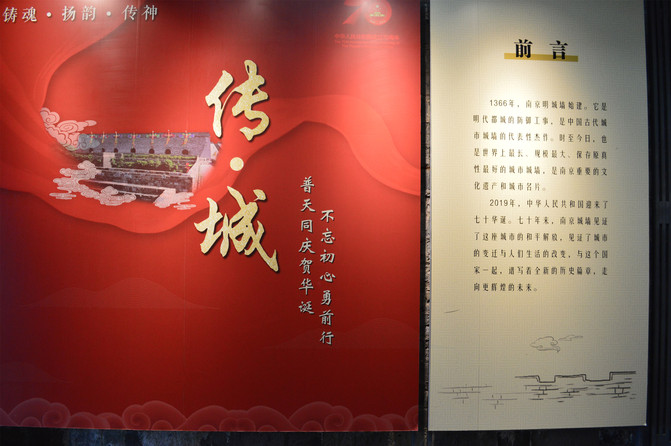 铸魂·扬韵·传神
70
传·城
普天同庆贺华诞
不忘初心勇前行
前言
1366年，南京明城墙始建。它是
明代都城的防御工事，是中国古代城
市城墙的代表性杰作。时至今日，也
是世界上最长、规模最大、保存原真
性最好的城市城墙，是南京重要的文
化遗产和城市名片。
2019年，中华人民共和国迎来了
七十华诞。七十年来，南京城墙见证
了这座城市的和平解放，见证了城市
的变迁与人们生活的改变，与这个国
家一起，谱写着全新的历史篇章，走
向更辉煌的未来。